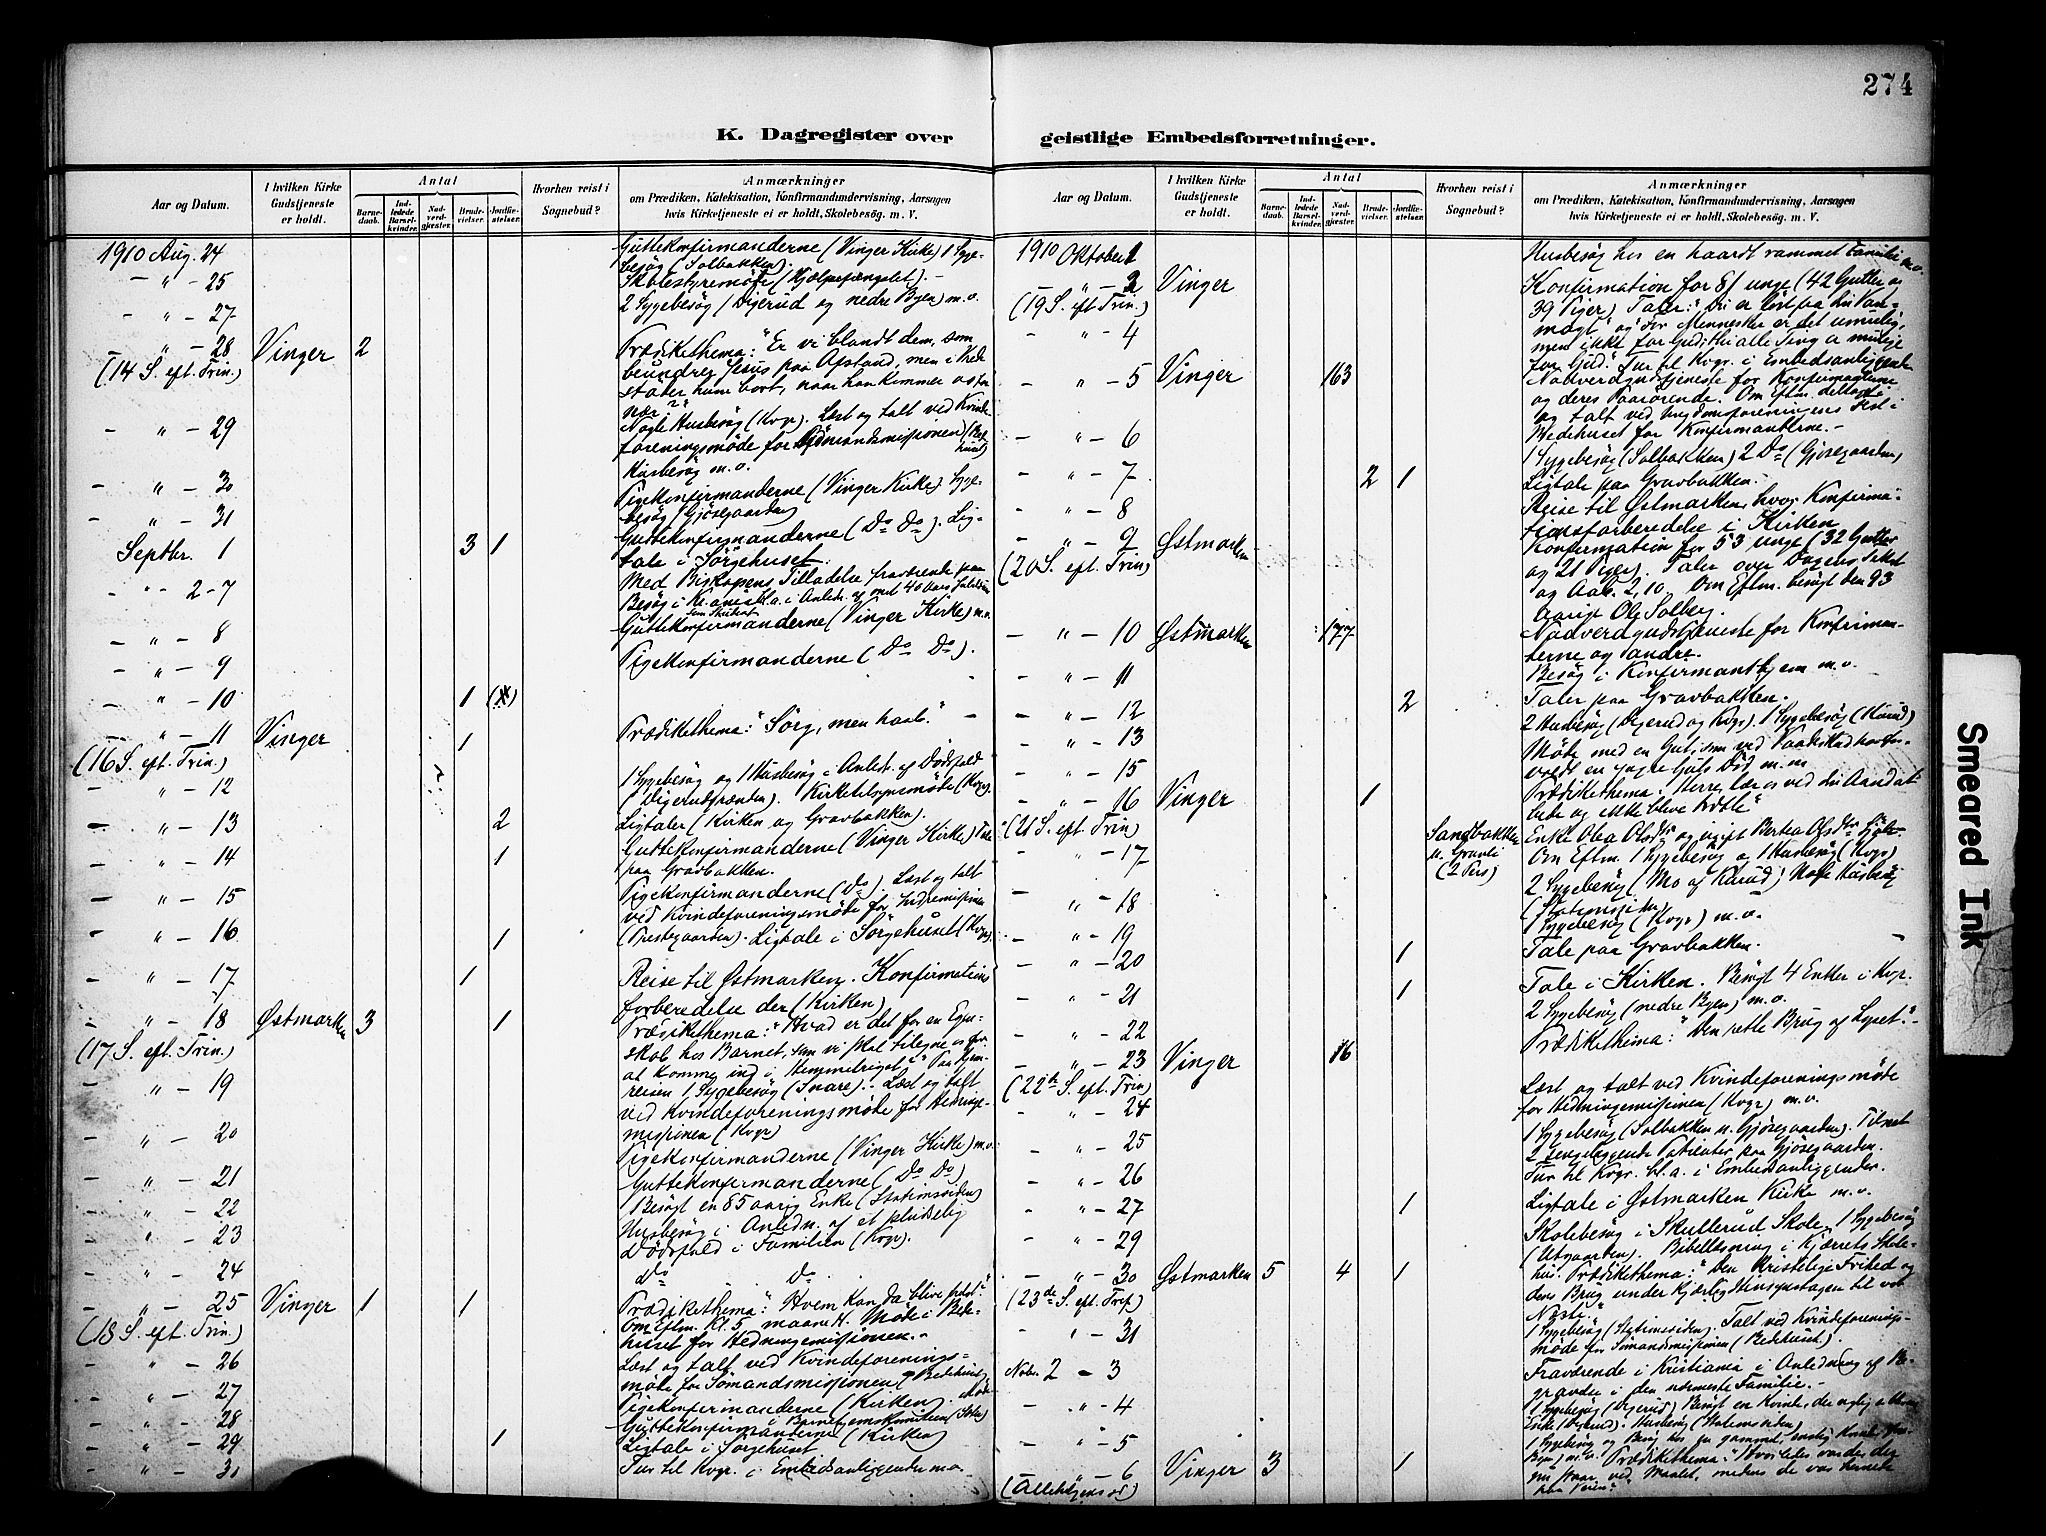 274
K. Dagregister over geistlige Embedsforretninger.
Aar og Datum.
I hvilken Kirke Gudstjeneste er holdt.
Antal
Barnedaab.
Indledede Barselkvinder.
Nadverdgjæster.
Brudevielser.
Jordfæstelser.
Hvorhen reist i Sognebud?
Anmærkninger
om Prædiken, Katekisation, Konfirmandundervisning, Aarsagen
hvis Kirketjeneste ei er holdt, Skolebesøg. m. V.
1910 Aug. 24 Guttekonfirmanderne (Vinger Kirke) 1 Syge-
besøg (Solbakken).
— " — 25 Skolestyremøde (Hjælpefængslet). —
— " — 27 2 Sygebesøg (Digerud og nedre Byen) m.v.
— " — 28 Vinger 2 Prædikethema: "Er vi blandt dem, som
(14 S. eft. Trin.) beundrer Jesus paa Afstand, men
støder ham bort, naar han kommer os for
nær?"
— " — 29 Nogle Husbesøg (Kvgr). Læst og talt ved Kvinde-
foreningsmøde for Sømandsmissionen
Husbesøg m.v.
— " — 30 Pigekonfirmanderne (Vinger Kirke) Syge-
— " — 31 besøg Gjøsegaarden
Septbr. 1 3 1 Guttekonfirmanderne (Do Do). Lig-
tale i Sørgehuset.
— " — 2-7 Med Biskopens Tilladelse fraværende paa
Besøg i Kr.ania bl.a. i Anledn. af mit 40 Aars Jubilæum
som Student
— " — 8 Guttekonfirmanderne (Vinger Kirke) m.v.
— " — 9 Pigekonfirmanderne (Do Do).
— " — 10 1
— " — 11 Vinger 1 Prædikethema: "Sørg, men haab." —
(16 S. eft. Trin.)
— " — 12 1 Sygebesøg og 1 Husbesøg i Anledn. af Dødsfald
(Digerudgrænden). Kirketilsynsmøde (Kvgr).
— " — 13 2 Ligtaler (Kirken og Gravbakken).
— " — 14 1 Guttekonfirmanderne (Vinger Kirke) Tale
paa Gravbakken.
— " — 15 Pigekonfirmanderne (Do). Læst og talt
ved Kvindeforeningsmøde for Indremissionen
— " — 16 1 (Prestegaarden). Ligtale i Sørgehuset (Kvgr).
— " — 17 1 Reise til Østmarken. Konfirmations
forberedelse der (Kirken)
— " — 18 Østmarken 3 1 Prædikethema: "Hvad er det for en Egen-
(17 S. eft. Trin.) skab hos Barnet, som vi skal tilegne os for
at komme ind i Himmelriget" Paa Hjem-
— " — 19 reisen 1 Sygebesøg (Snare). Læst og talt
ved Kvindeforeningsmøde for Hedninge-
missionen (Kvgr)
— " — 20 Pigekonfirmanderne (Vinger Kirke) m.v.
— " — 21 Guttekonfirmanderne (Do Do)
— " — 22 Besøgt en 85 aarig Enke (Stationssiden)
— " — 23 Husbesøg i Anledn. af et pludselig
Dødsfald i Familien (Kvgr).
— " — 24 do do
— " — 25 Vinger 1 1 Prædikethema: "Hvem kan da blive frelst."
(18 S. eft. Trin.) Om Eftm. Kl. 5 maaned. Møde i Bede-
huset for Hedningemissionen. —
— " — 26 Læst og talt ved Kvindeforenings-
møde for Sømandsmissionen (Bedehuset)
— " — 27 Pigekonfirmanderne (Kirken)
— " — 28 Guttekonfirmanderne (Kirken)
— " — 29 1 Ligtale i Sørgehuset
— " — 30 Tur til Kvgr. i Embedsanliggender m.v.
Aar og Datum.
I hvilken Kirke Gudstjeneste er holdt.
Antal
Barnedaab.
Indledede Barselkvinder.
Nadverdgjæster.
Brudevielser.
Jordfæstelser.
Hvorhen reist i Sognebud?
Anmærkninger
om Prædiken, Katekisation, Konfirmandundervisning, Aarsagen
hvis Kirketjeneste ei er holdt, Skolebesøg. m. V.
1910 Oktober 1 Husbesøg hos en haardt rammet Familie m.v.
— " — 2 Vinger Konfirmation for 81 unge (42 Gutter og
(19 S. eft. Trin.) 39 Piger) Taler:
magt" og "For Mennesker er det umulig,
— " — 4 men ikke for Gud thi alle Ting er mulige
for Gud." Tur til Kvgr. i Embedsanliggender
— " — 5 Vinger 163 Nadverdgudstjeneste for Konfirmanterne
og deres Paarørende. Om Eftm. deltaget i
og talt ved Ungdomsforeningens Fest i
— " — 6 Bedehuset for Konfirmanterne. —
1 Sygebesøg (Solbakken) 2 Do (Gjøsegaarden)
— " — 7 2 1 Ligtale paa Gravbakken. —
— " — 8 Reise til Østmarken, hvor Konfirma-
tionsforberedelse i Kirken
— " — 9 Østmarken Konfirmation for 53 unge (32 Gutter
(20 S. eft. Trin) og 21 Piger). Taler over Dagens Tekst
og Aab. 2,10. Om Eftm. besøgt den 93
aarige Ole Solberg.
— " — 10 Østmarken 177 Nadverdgudstjeneste for Konfirman-
terne og andre.
— " — 11 Besøg i Konfirmanthjem m.v.
2 Taler paa Gravbakken.
— " — 12 2 Husbesøg (Digerud og Kvgr). 1 Sygebesøg
— " — 13 Møde med en Gut, som ved Vaadeskud har for-
— " — 15 voldt en yngre Guts Død m.m
— " — 16 Vinger 1 Prædikethema: "Herre, lær os ved din Aand at
(21 S. eft. Trin) lide og ikke blive trætte"
— " — 17 Sandbakken og Gravli (2 Pers) Enke Oba Olsdtr og ugift Bertea Olsdtr
Om Eftm. 1 Sygebesøg og 1 Husbesøg (Kvgr)
— " — 18 2 Sygebesøg (Mo og Rærud) Husbesøg
(Stationssiden)
— " — 19 1 Sygebesøg (Kvgr) m.v.
— " — 20 1 Tale paa Gravbakken.
— " — 21 1 Tale i Kirken. Besøgt 4 Enker i Kvgr.
— " — 22 2 Sygebesøg (nedre Byen) m.v.
— " — 23 Vinger 16 Prædikethema: "Den rette Brug af Lyset". —
(22de S. eft. Trin)
— " — 24 Læst og talt ved Kvindeforeningsmøde
for Hedningemissionen (Kvgr) m.v.
— " — 25 1 Sygebesøg (Solbakken u. Gjøsegaarden). Tilset
2 sengeliggende Patienter paa Gjøsegaarden.
— " — 26 Tur til Kvgr. bl.a. i Embedsanliggender.
— " — 27 1 Ligtale i Østmarken Kirke m.v.
— " — 29 Skolebesøg i Skullerud Skole, 1 Sygebesøg
(Utgaarden). Bibellæsning i Kjærrets Skole-
— " — 30 Østmarken 5 4 1 hus. Prædikethema: "Den kristelige Frihed og
(23de S. eft. Tref) dens Brug under Kjærlig Hensyntagen til vor
Næste."
— " — 31 1 Sygebesøg (Stationssiden). Talt ved Kvindeforenings-
møde for Sømandsmissionen (Bedehuset).
Nobr. 2 — 3 Fraværende i Kristiania i Anledning af Be-
gravelse i den nærmeste Familie. —
— " — 4 1 Sygebesøg (Digerud) Besøgt en Kvinde,
Enke (Digerud). Husbesøg (Stationssiden)
— " — 5 1 Sygebesøg og Besøg hos
— " — 6 Vinger 3 1 Prædikethema: "Hvorledes
(Allehelgensd) nu staar ved Maalet, medens de var hernede
paa Veien."
Smeared Ink